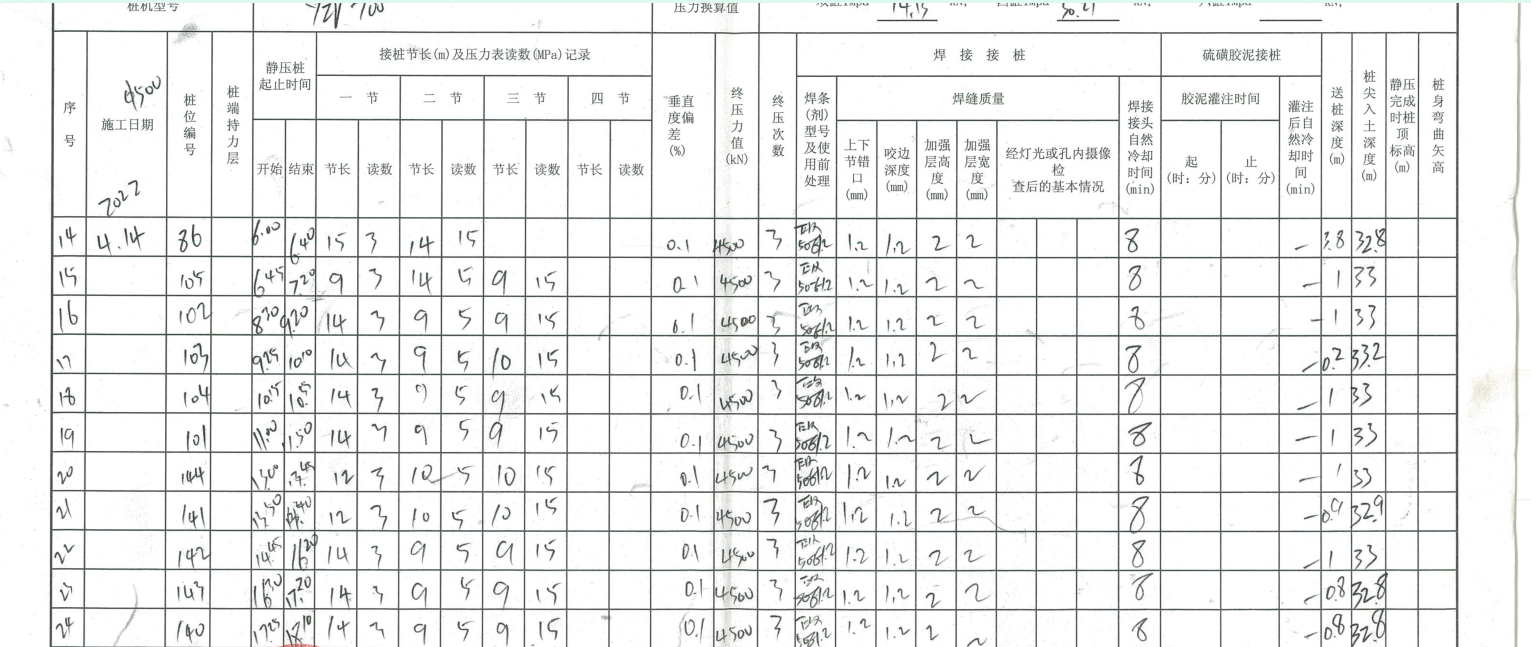 桩机型号 压力换算值 14.15 kN, 50.21 kN, kN,
序号 4500 施工日期 2022 桩位编号 桩端持力层 静压桩起止时间 接桩节长(m)及压力表读数(MPa)记录 垂直度偏差(%) 终压力值(kN) 终压次数 焊接接桩 硫磺胶泥接桩 送桩深度(m) 桩尖入土深度(m) 静压完成时桩顶标高(m) 桩身弯曲矢高
一节 二节 三节 四节 焊条(剂)型号及使用前处理 焊缝质量 焊接接头自然冷却时间(min) 胶泥灌注时间 灌注后自然冷却时间(min)
开始 结束 节长 读数 节长 读数 节长 读数 节长 读数 上下节错口(mm) 咬边深度(mm) 加强层高度(mm) 加强层宽度(mm) 经灯光或孔内摄像检查后的基本情况 起(时:分) 止(时:分)
14 4.14 86 6.00 6.40 15 3 14 15 0.1 4500 3 1.2 1.2 2 2 8 - 3.8 32.8
15 105 6.45 7.20 9 3 14 5 9 15 0.1 4500 3 1.2 1.2 2 2 8 - 1 33
16 102 8.30 9.20 14 3 9 5 9 15 0.1 4500 3 1.2 1.2 2 2 8 - 1 33
17 103 9.25 10.10 14 3 9 5 10 15 0.1 4500 3 1.2 1.2 2 2 8 - 0.2 33.2
18 104 10.15 10.5 14 3 9 5 9 15 0.1 4500 3 1.2 1.2 2 2 8 - 1 33
19 101 11.00 11.50 14 3 9 5 9 15 0.1 4500 3 1.2 1.2 2 2 8 - 1 33
20 144 13.00 13.45 12 3 10 5 10 15 0.1 4500 3 1.2 1.2 2 2 8 - 1 33
21 141 13.50 14.40 12 3 10 5 10 15 0.1 4500 3 1.2 1.2 2 2 8 - 0.9 32.9
22 142 14.45 16.20 14 3 9 5 9 15 0.1 4500 3 1.2 1.2 2 2 8 - 1 33
23 143 16.30 17.20 14 3 9 5 9 15 0.1 4500 3 1.2 1.2 2 2 8 - 0.8 32.8
24 140 17.25 18.10 14 3 9 5 9 15 0.1 4500 3 1.2 1.2 2 2 8 - 0.8 32.8